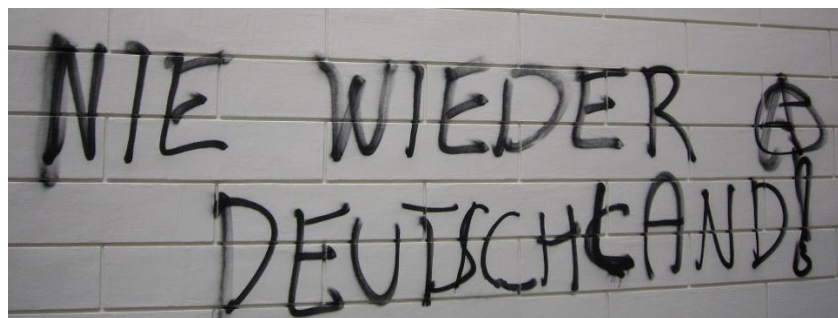 NIE WIEDER Ⓐ
DEUTSCHLAND!